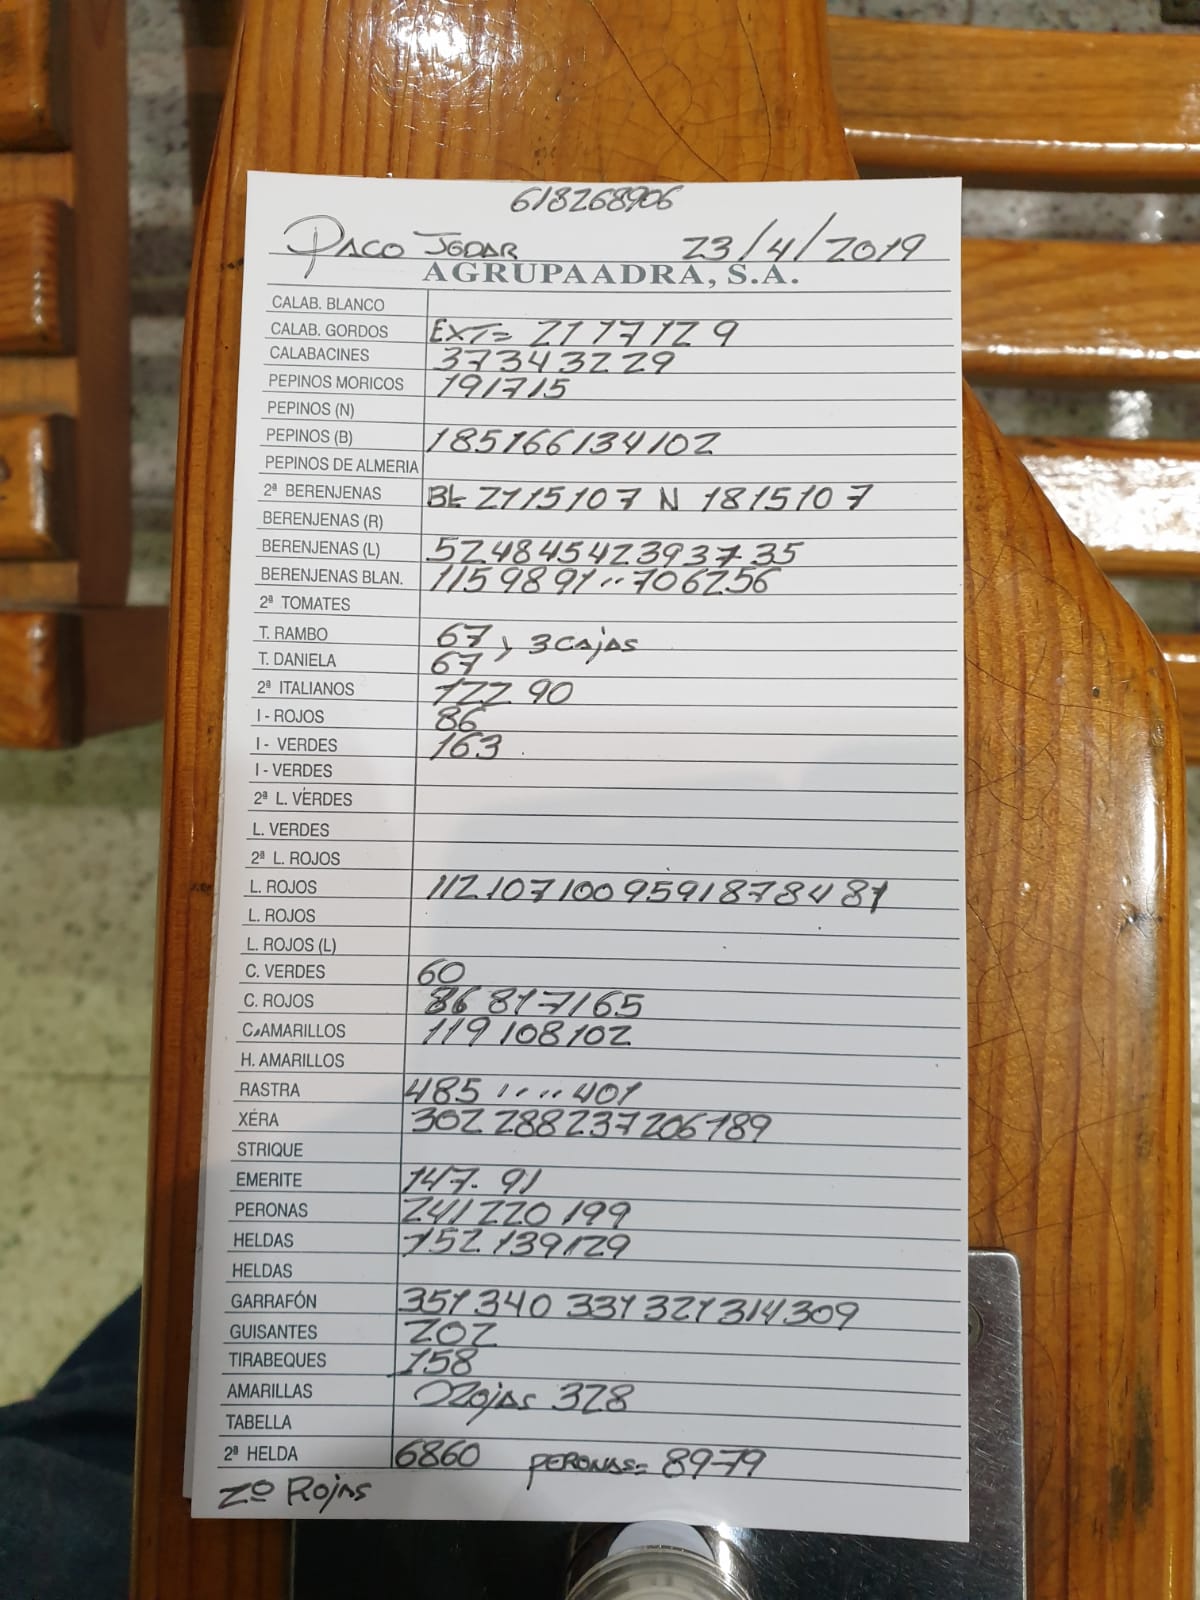 618268906
PACO JGDAR 23/4/2019
AGRUPAADRA, S.A.
CALAB. BLANCO
CALAB. GORDOS EXT= 21 17 12 9
CALABACINES 37 34 32 29
PEPINOS MORICOS 19 17 15
PEPINOS (N)
PEPINOS (B) 185 166 134 102
PEPINOS DE ALMERIA
2ª BERENJENAS BL 21 15 10 7 N 18 15 10 7
BERENJENAS (R)
BERENJENAS (L) 52 48 45 42 39 37 35
BERENJENAS BLAN. 115 98 91 .. 70 62 56
2ª TOMATES
T. RAMBO 67 } 3 cajas
T. DANIELA 67
2ª ITALIANOS 122 90
I - ROJOS 86
I - VERDES 163
I - VERDES
2ª L. VERDES
L. VERDES
2ª L. ROJOS
L. ROJOS 112 107 100 95 91 87 84 81
L. ROJOS
L. ROJOS (L)
C. VERDES 60
C. ROJOS 86 81 71 65
C. AMARILLOS 119 108 102
H. AMARILLOS
RASTRA 485 .... 401
XÉRA 302 288 237 206 189
STRIQUE
EMERITE 147. 91
PERONAS 241 220 199
HELDAS 152 139 129
HELDAS
GARRAFÓN 351 340 331 321 314 309
GUISANTES 202
TIRABEQUES 158
AMARILLAS Rojas 328
TABELLA
2ª HELDA 68 60 PERONAS= 89 79
2º Rojas